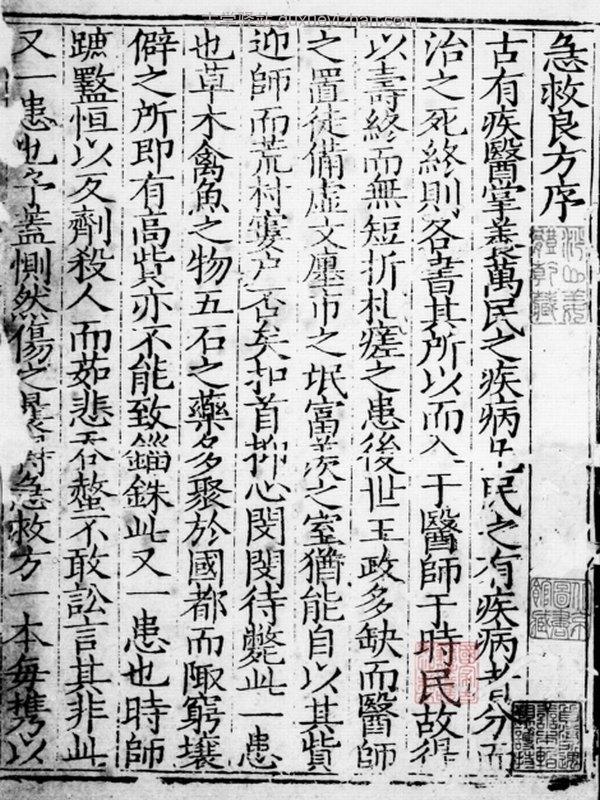 古学驿站 guxueyizhan.com
急救良方序
古有疾醫掌養萬民之疾病凡民之有疾病者分而
治之死終則各書其所以而入于醫師于時民故得
以壽終而無短折札瘥之患後世王政多缺而醫師
之置徒備虛文廛市之氓富羨之室猶能自以其貲
迎師而荒村窶戶否矣扣首抑心閔閔待斃此一患
也草木禽魚之物五石之藥多聚於國都而陬窮壤
僻之所即有高貲亦不能致錙銖此又一患也時師
蹠盭恒以夭劑殺人而茹悲吞螫不敢訟言其非此
又一患也予蓋惻然傷之急救方一本每攜以
北京圖書館藏